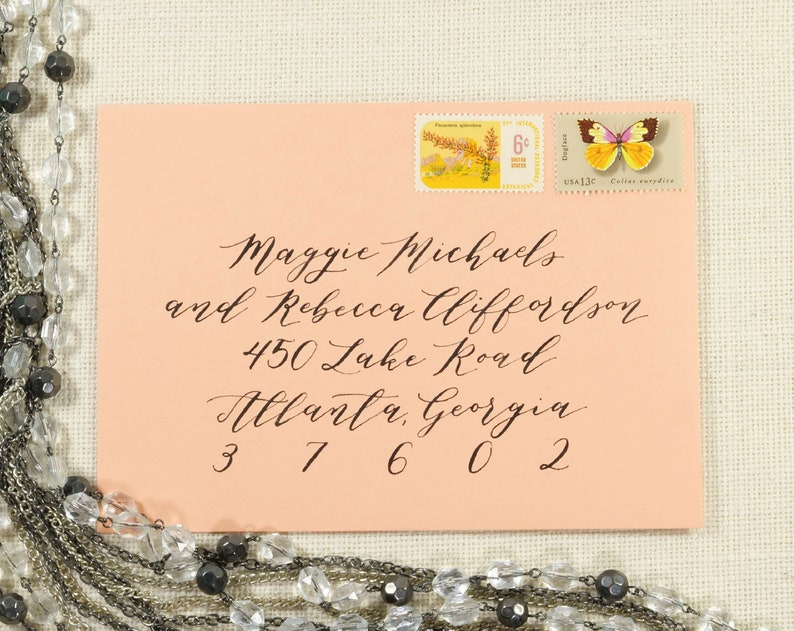 Fouquieria splendens
6¢
UNITED
STATES
XI TH INTERNATIONAL
BOTANICAL CONGRESS
Dogface
USA 13c
Colias eurydice
Maggie Michaels
and Rebecca Cliffordson
450 Lake Road
Atlanta, Georgia
3 7 6 0 2